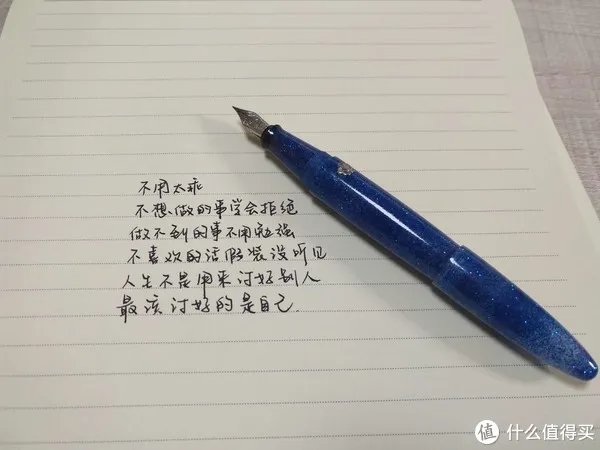 不用太乖
不想做的事学会拒绝
做不到的事不用勉强
不喜欢的话假装没听见
人生不是用来讨好别人
最该讨好的是自己.
值 什么值得买